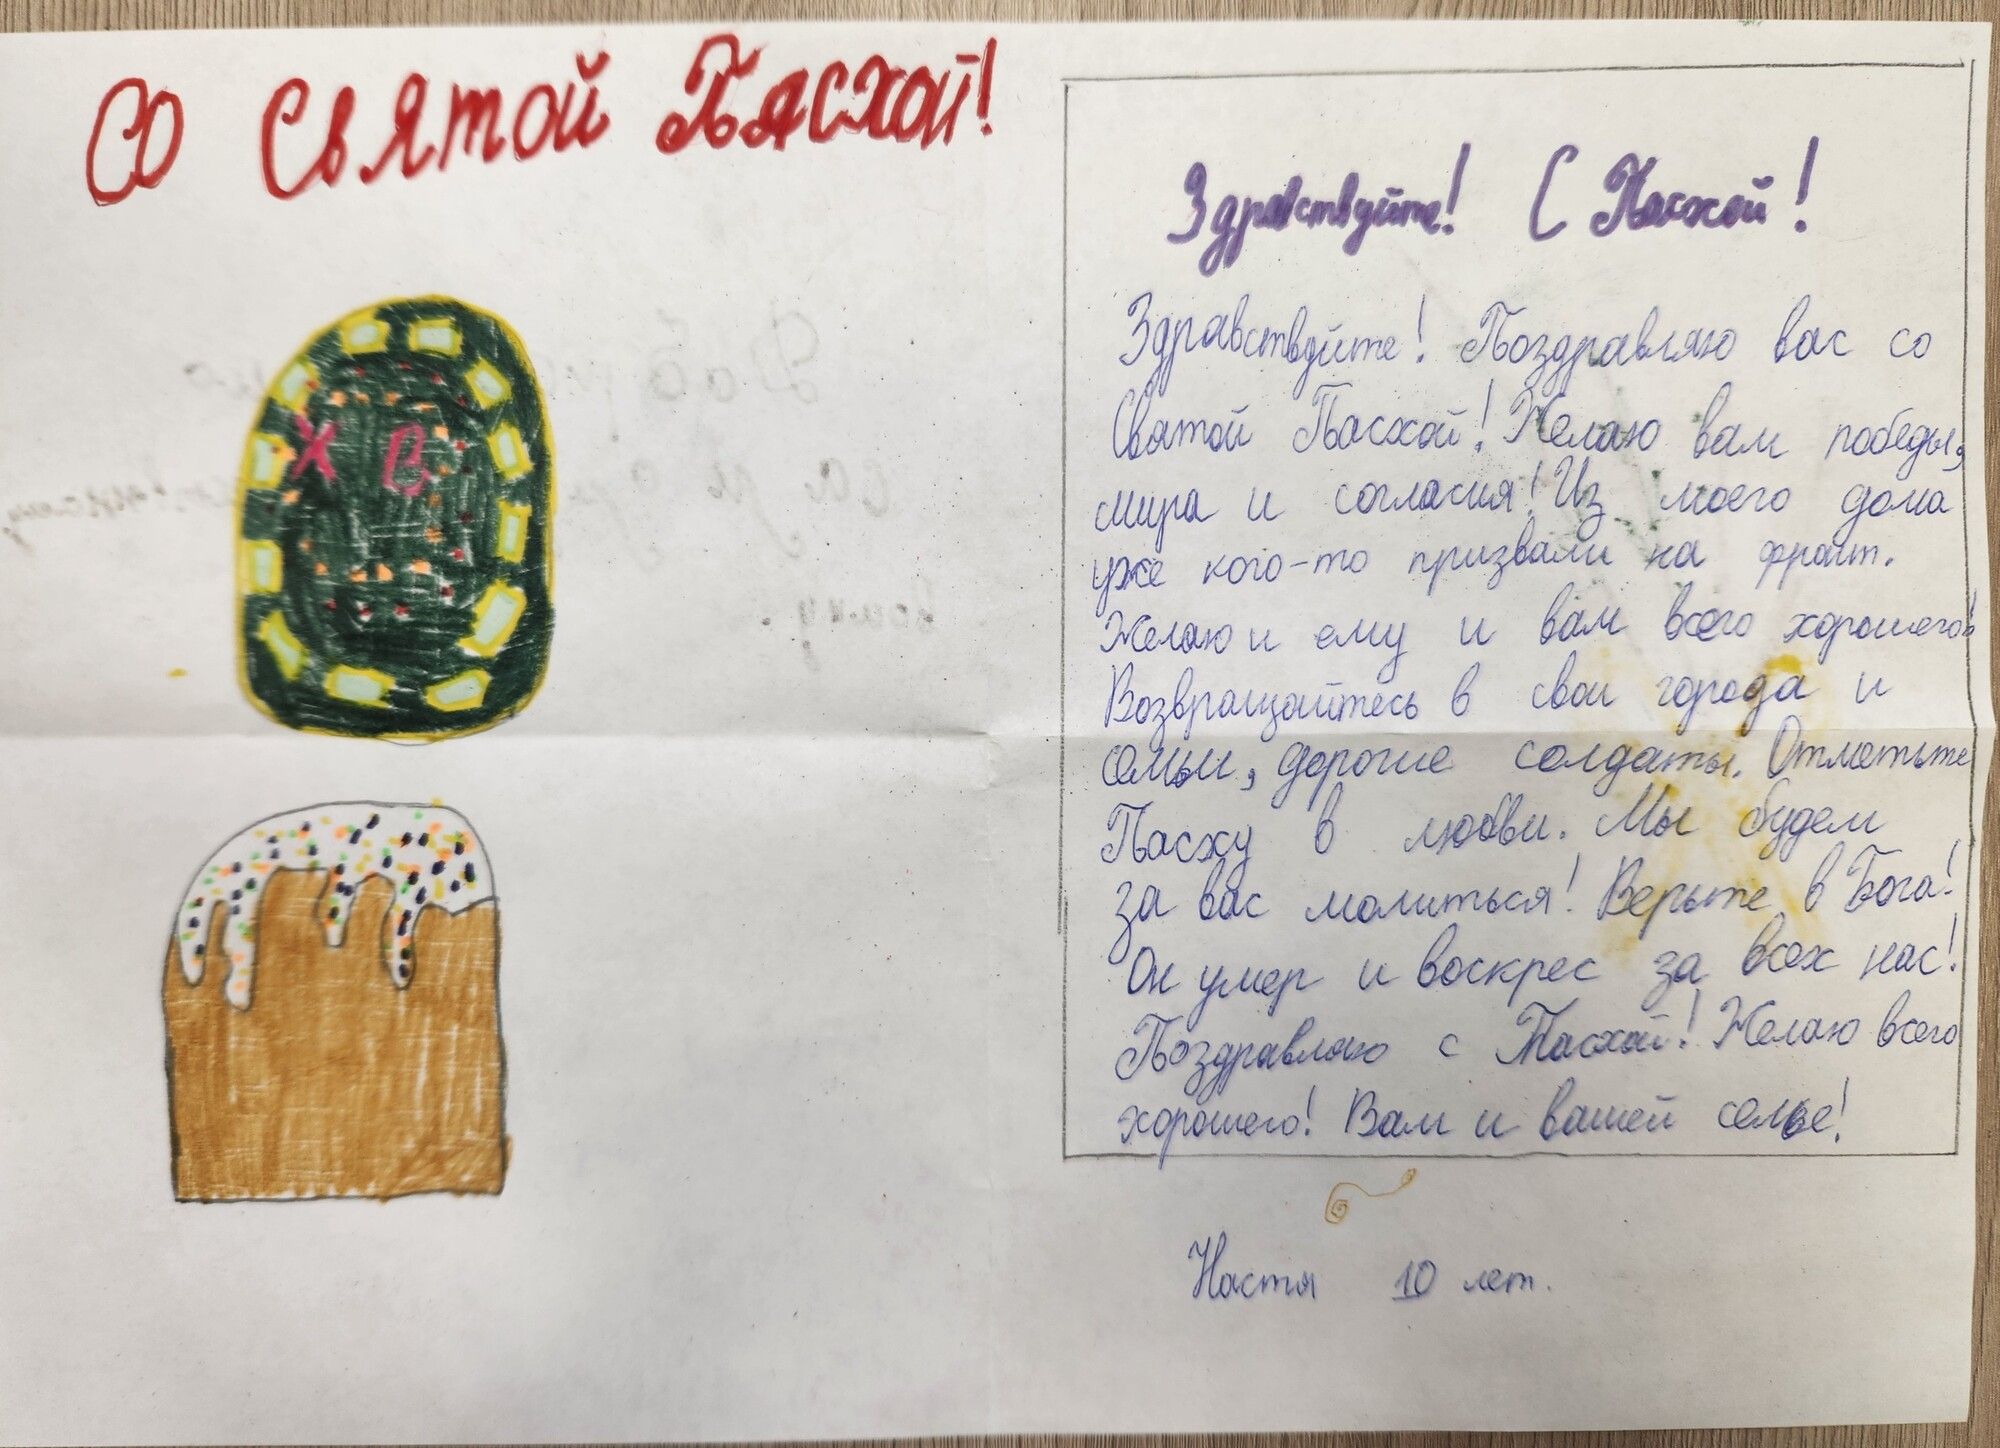 Со Святой Пасхой!
Х В
Здравствуйте! С Пасхой!
Здравствуйте! Поздравляю вас со
Святой Пасхой! Желаю вам победы,
мира и согласия! Из моего дома
уже кого-то призвали на фронт.
Желаю и ему и вам всего хорошего!
Возвращайтесь в свои города и
семьи, дорогие солдаты. Отметьте
Пасху в любви. Мы будем
за вас молиться! Верьте в Бога!
Он умер и воскрес за всех нас!
Поздравляю с Пасхой! Желаю всего
хорошего! Вам и вашей семье!
Настя 10 лет.